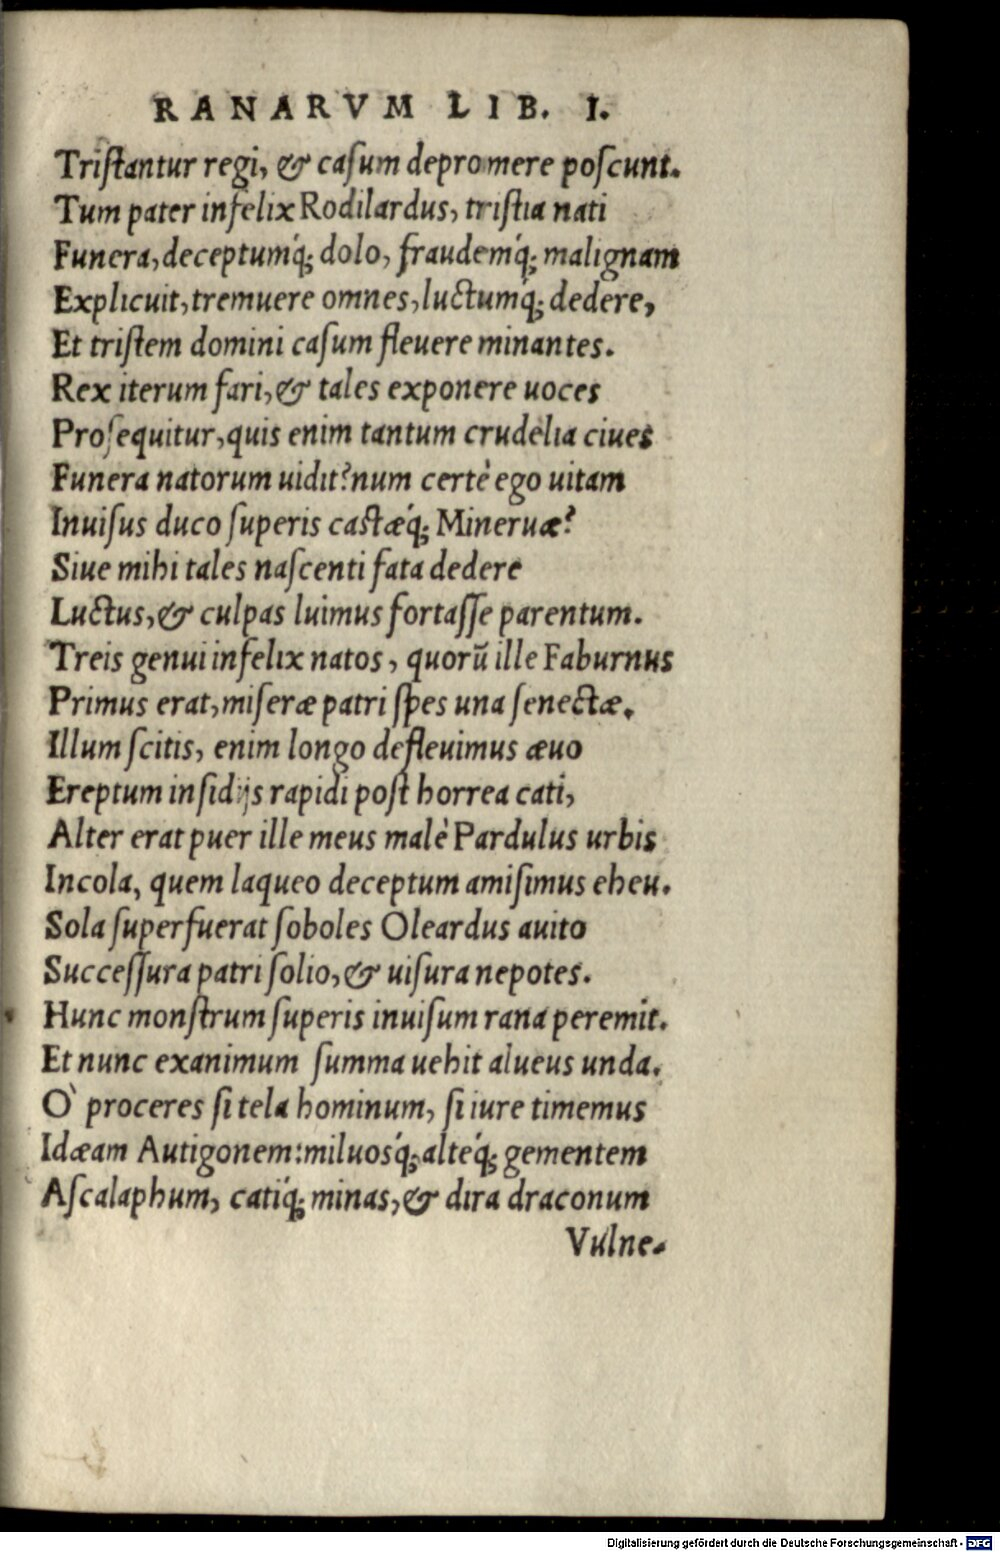 RANARVM LIB. I.
Triſtantur regi, & caſum depromere poſcunt.
Tum pater infelix Rodilardus, triſtia nati
Funera, deceptumq́; dolo, fraudemq́; malignam
Explicuit, tremuere omnes, luctumq́; dedere,
Et triſtem domini caſum fleuere minantes.
Rex iterum fari, & tales exponere uoces
Proſequitur, quis enim tantum crudelia ciues
Funera natorum uidit? num certè ego uitam
Inuiſus duco ſuperis caſtæq́; Mineruæ?
Siue mihi tales naſcenti fata dedere
Luctus, & culpas luimus fortaſſe parentum.
Treis genui infelix natos, quorũ ille Faburnus
Primus erat, miſeræ patri ſpes una ſenectæ.
Illum ſcitis, enim longo defleuimus æuo
Ereptum inſidijs rapidi poſt horrea cati,
Alter erat puer ille meus malè Pardulus urbis
Incola, quem laqueo deceptum amiſimus eheu.
Sola ſuperfuerat ſoboles Oleardus auito
Succeſſura patri ſolio, & uiſura nepotes.
Hunc monſtrum ſuperis inuiſum rana peremit.
Et nunc exanimum ſumma uehit alueus unda.
Ò proceres ſi tela hominum, ſi iure timemus
Idæam Autigonem: miluosq́; alteq́; gementem
Aſcalaphum, catiq́; minas, & dira draconum
Vulne-
Digitalisierung gefördert durch die Deutsche Forschungsgemeinschaft - DFG